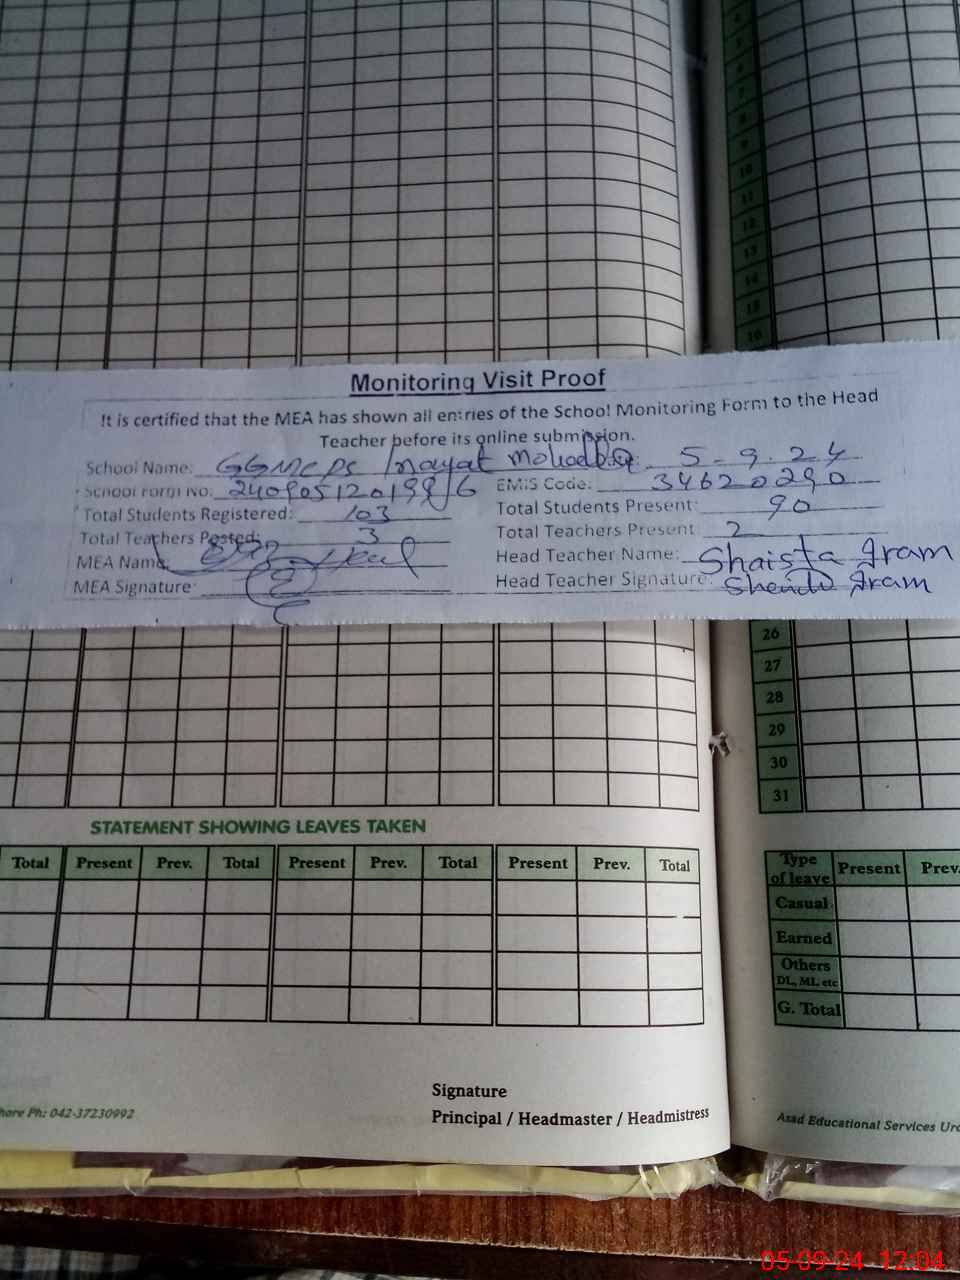 4
5
6
7
8
9
10
11
12
13
14
15
16
Monitoring Visit Proof
It is certified that the MEA has shown all entries of the School Monitoring Form to the Head
Teacher before its online submission.
School Name: GGMCPS Inayat 5-9-24
School Form No: EMIS Code: 34620290
Total Students Registered: 103 Total Students Present: 90
Total Teachers Posted: 3 Total Teachers Present: 2
MEA Name: Head Teacher Name: Shaista Iram
MEA Signature: Head Teacher Signature: Iram
26
27
28
29
30
31
STATEMENT SHOWING LEAVES TAKEN
Total Present Prev. Total Present Prev. Total Present Prev. Total
Type of leave Present Prev.
Casual
Earned
Others
DL, ML etc
G. Total
Signature
Principal / Headmaster / Headmistress
hore Ph: 042-37230992
Asad Educational Services Urd
05-09-24 12:04